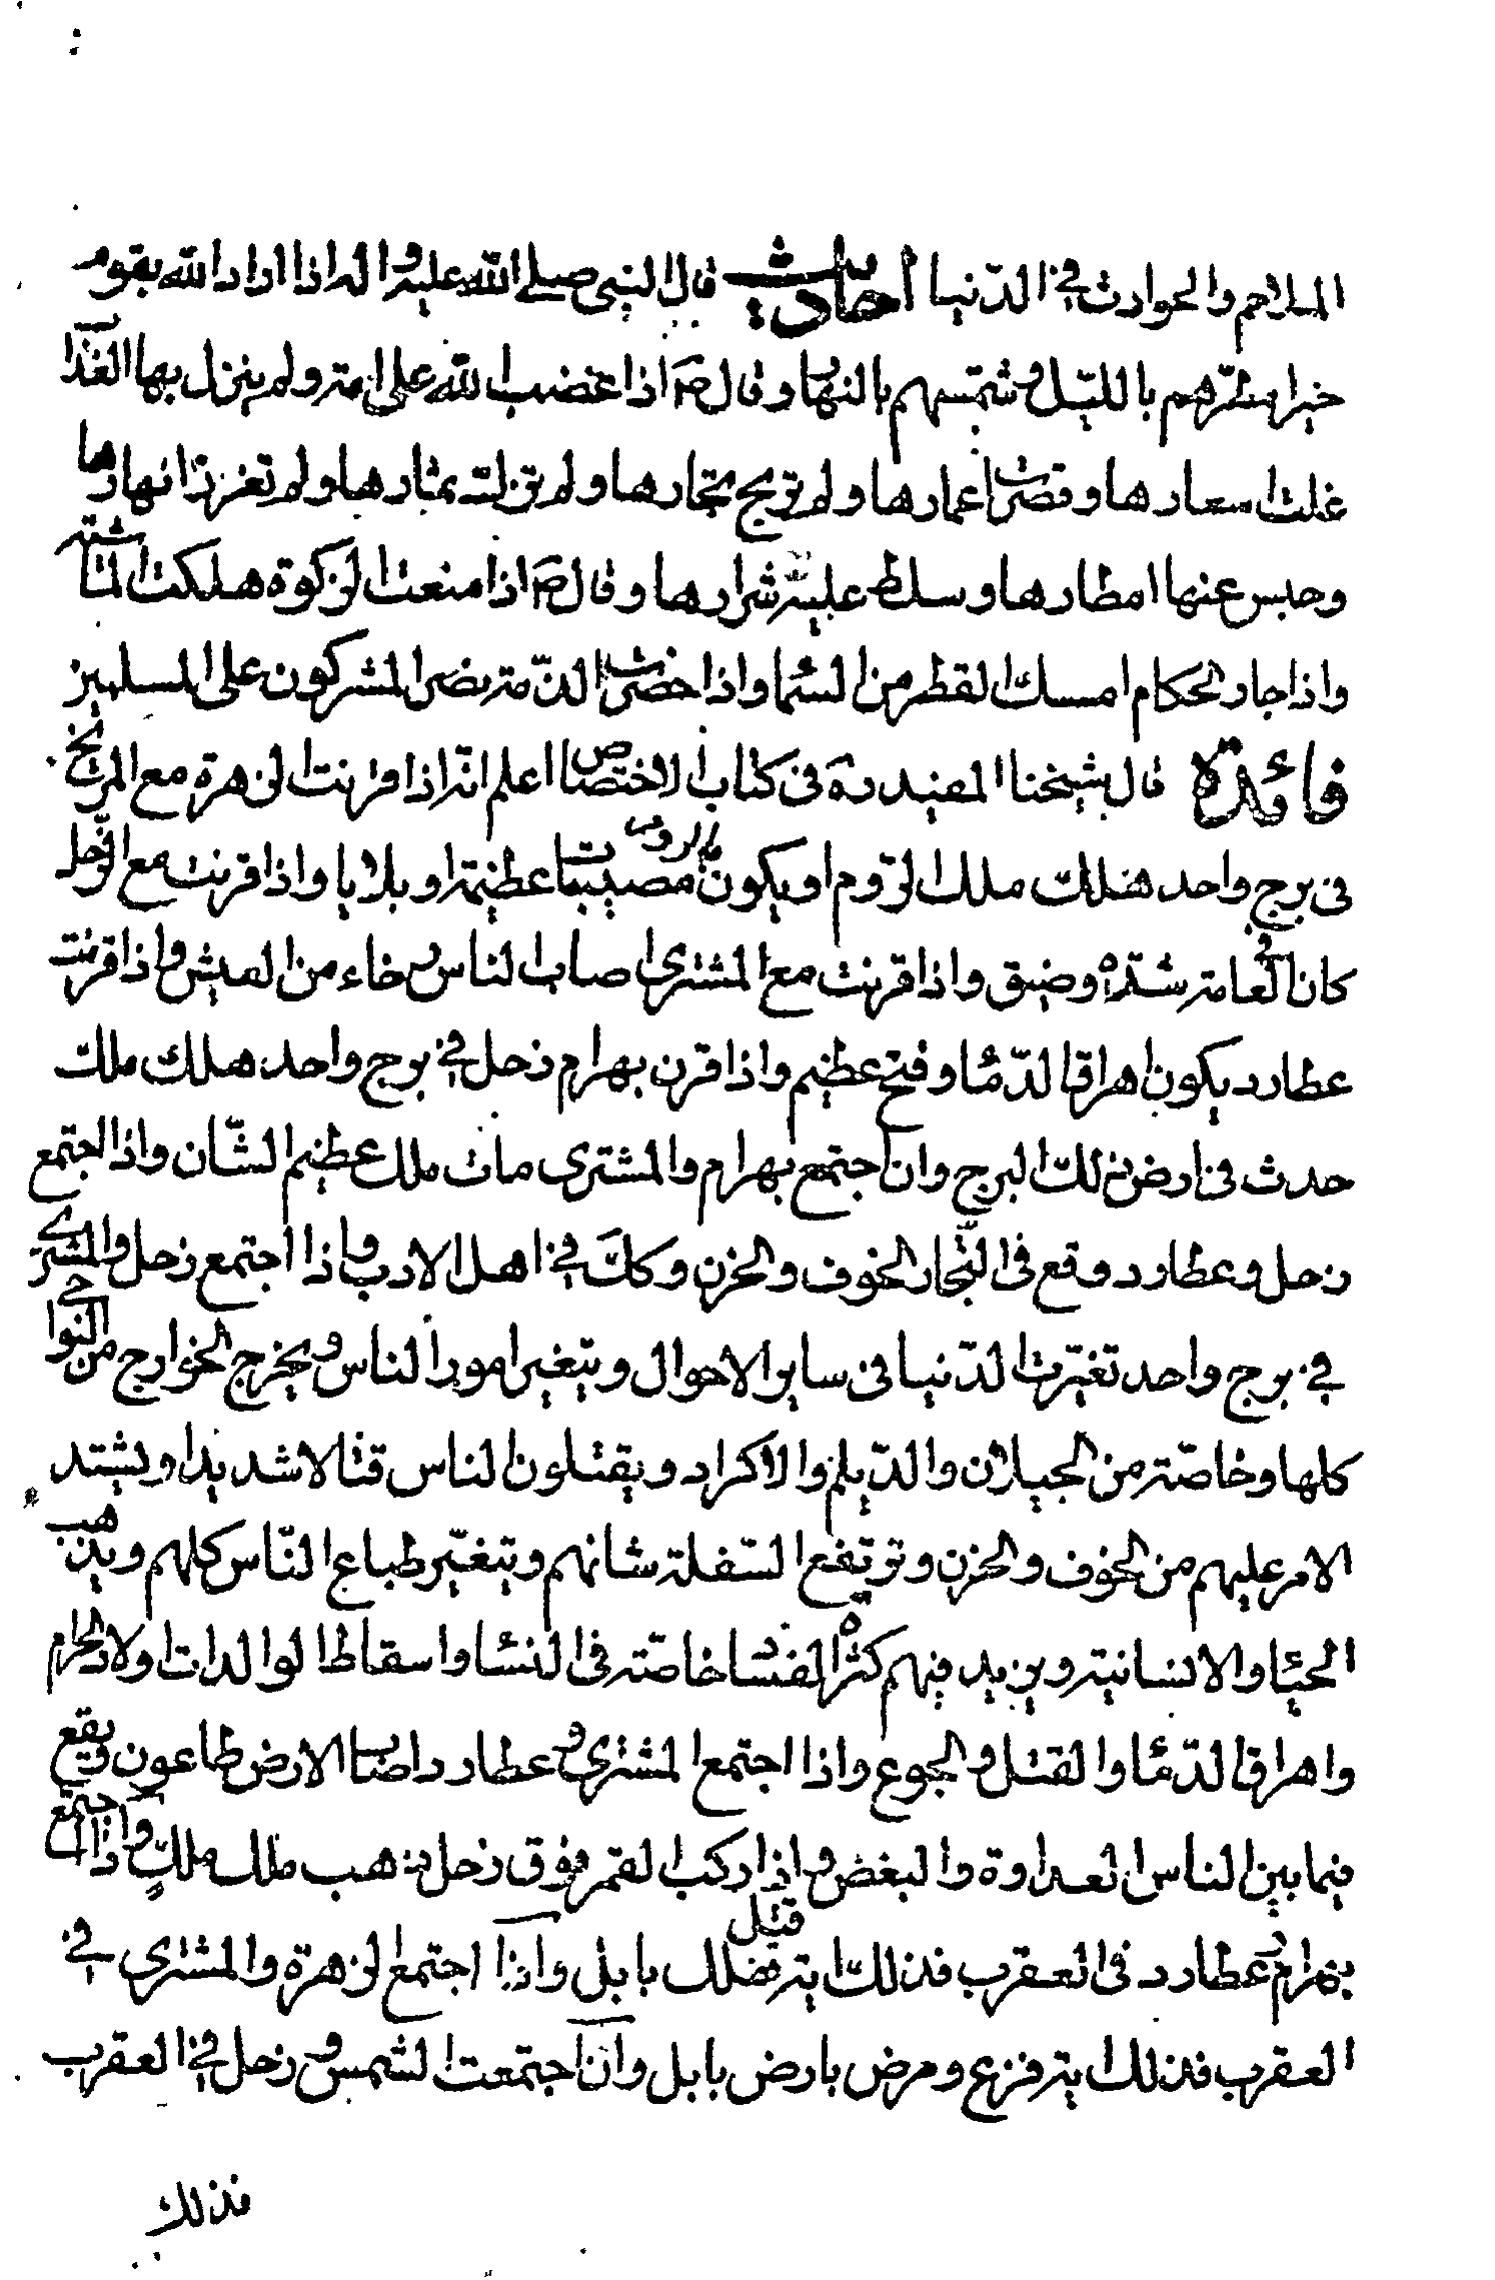 الملاحم والحوادث في الدّنيا احاديث قال النبي صلى الله عليه واله اذا اراد الله بقوم
خيرا مطرهم بالليل وشمسهم بالنهار وقال ص اذا غضب الله على امة ولم ينزل بها العذاب
غلت اسعارها وقصرت اعمارها ولم تربح تجارها ولم تزك ثمارها ولم تغزر انهارها
وحبس عنها امطارها وسلط عليها شرارها وقال ص اذا منعت الزكوة هلكت الماشية
واذا جار الحكام امسك القطر من السماء واذا خفرت الذمة نصر المشركون على المسلمين
فائدة قال شيخنا المفيد ره في كتاب الاختصاص اعلم انّه اذا قرنت الزهرة مع المريخ
في برج واحد هلك ملك الروم او يكون بالروم مصيبات عظيمة او بلايا واذا قرنت مع الزّحل
كان في العامة شدّة وضيق واذا قرنت مع المشتري اصاب الناس رخاء من العيش واذا قرنت
عطارد يكون اهراق الدّماء وفتح عظيم واذا قرن بهرام زحل في برج واحد هلك ملك
حدث في ارض ذلك البرج وان اجتمع بهرام والمشتري مات ملك عظيم الشّان واذا اجتمع
زحل وعطارد وقع في التجار الخوف والحزن وكك في اهل الادب واذا اجتمع زحل والمشتري
في برج واحد تغيّرت الدّنيا في ساير الاحوال ويتغير امور الناس ويخرج الخوارج من النواحي
كلها وخاصّة من الجيلان والدّيلم والاكراد ويقتلون الناس قتالا شديدا ويشتد
الامر عليهم من الخوف والحزن وترتفع السّفلة شانهم ويتغيّر طباع النّاس كلهم ويذهب
الحياء والانسانية ويزيد فيهم كثرة الفساد خاصّة في النساء واسقاط الوالدات اولاد الحرام
واهراق الدّماء والقتل والجوع واذا اجتمع المشتري وعطارد اصاب الارض طاعون ويقع
فيما بين الناس العداوة والبغض واذا ركب القمر فوق زحل يذهب ملك ملك واذا اجتمع
بهرام وعطارد في العقرب فذلك اية قتل ملك بابل واذا اجتمع الزهرة والمشتري في
العقرب فذلك اية فزع ومرض بارض بابل وان اجتمعت الشمس وزحل في العقرب
فذلك